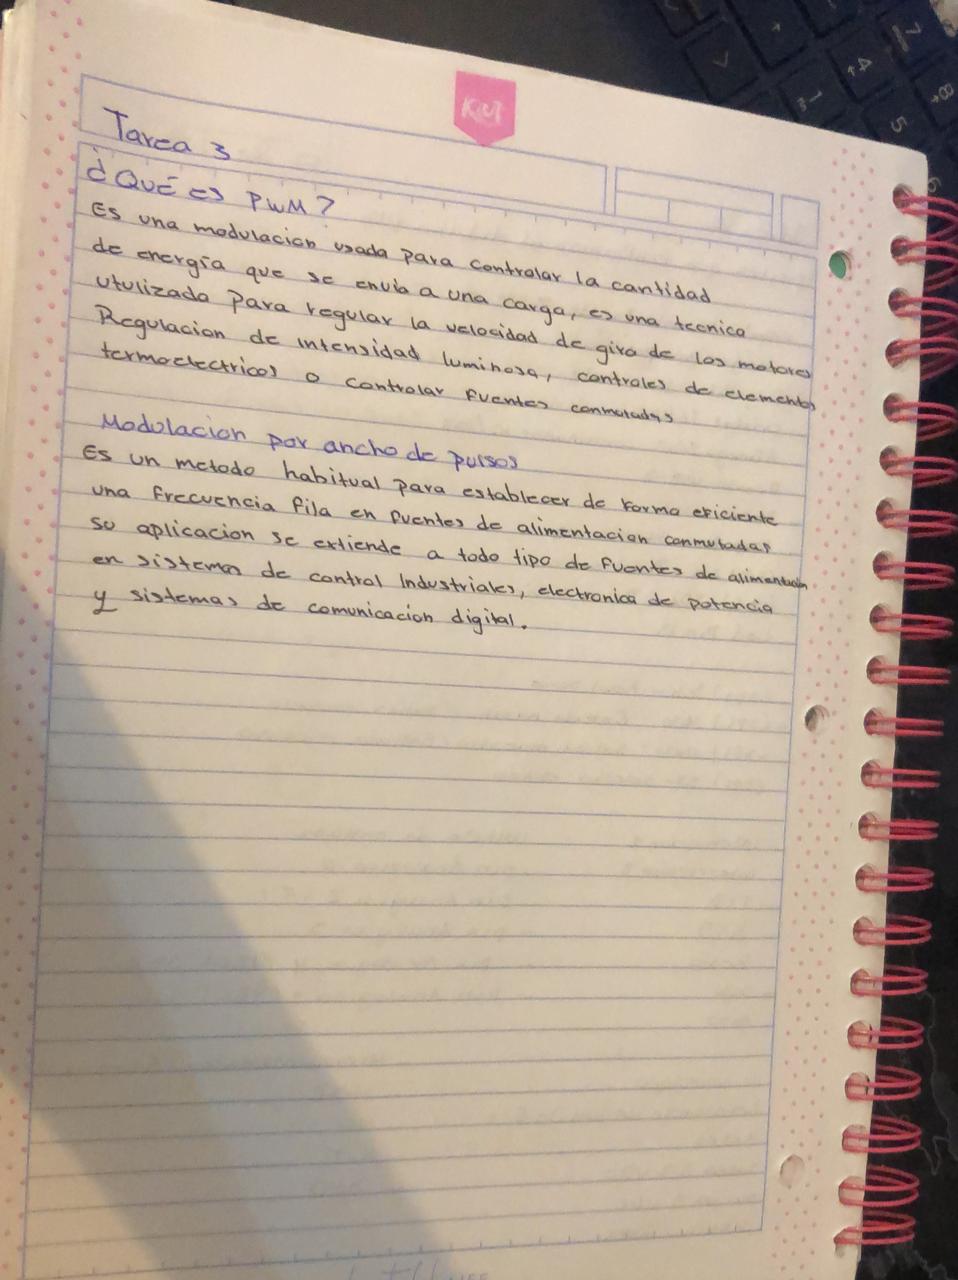 Tarea 3
¿Qué es PWM?
Es una modulacion usada para controlar la cantidad
de energía que se envia a una carga, es una tecnica
utulizada para regular la velocidad de giro de los motores
Regulacion de intensidad luminosa, controles de elementos
termoelectricos o controlar fuentes conmutadas
Modulacion por ancho de pulsos
Es un metodo habitual para establecer de forma eficiente
una frecuencia fila en fuentes de alimentacion conmutadas
su aplicacion se extiende a todo tipo de fuentes de alimentacion
en sistemas de control Industriales, electronica de potencia
y sistemas de comunicacion digital.